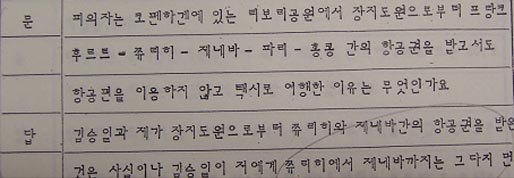 문 피의자는 코펜하겐에 있는 띠보리공원에서 장지도원으로부터 프랑크
후르트 - 쮸리히 - 제네바 - 파리 - 홍콩 간의 항공권을 받고서도
항공편을 이용하지 않고 택시로 여행한 이유는 무엇인가요
답 김승일과 제가 장지도원으로부터 쮸리히와 제네바간의 항공권을 받은
것은 사실이나 김승일이 저에게 쮸리히에서 제네바까지는 그다지 먼